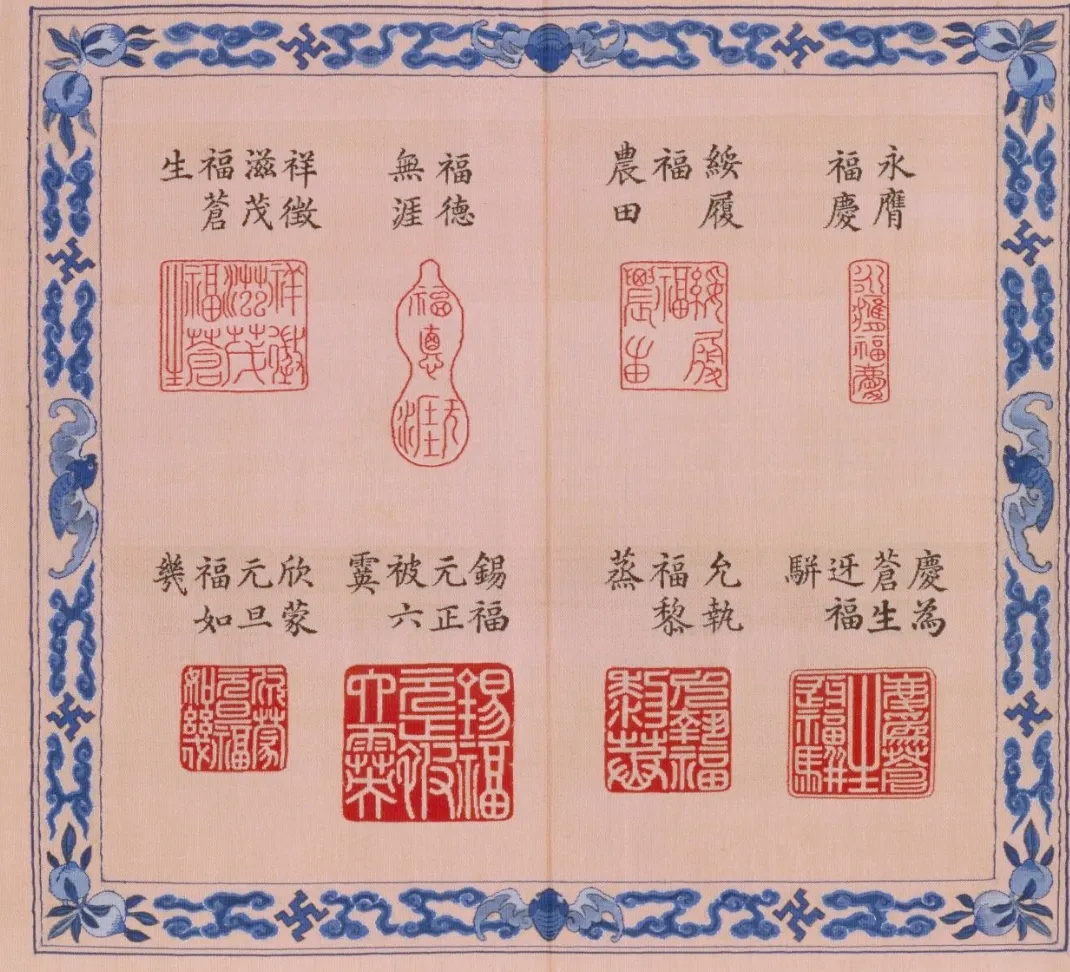 永膺
福慶
永膺福慶
綏履
福
農田
綏履
福
農田
福德
無涯
福
惪
无涯
祥徵
滋茂
福蒼
生
祥徵
滋茂
福蒼
生
慶為
蒼生
迓福
駢
慶為蒼
生
迓福駢
允執
福黎
蒸
允執福
黎蒸
錫福
元正
被六
霙
錫福
元正被
六霙
欣蒙
元旦
福如
幾
欣蒙
元旦福
如幾